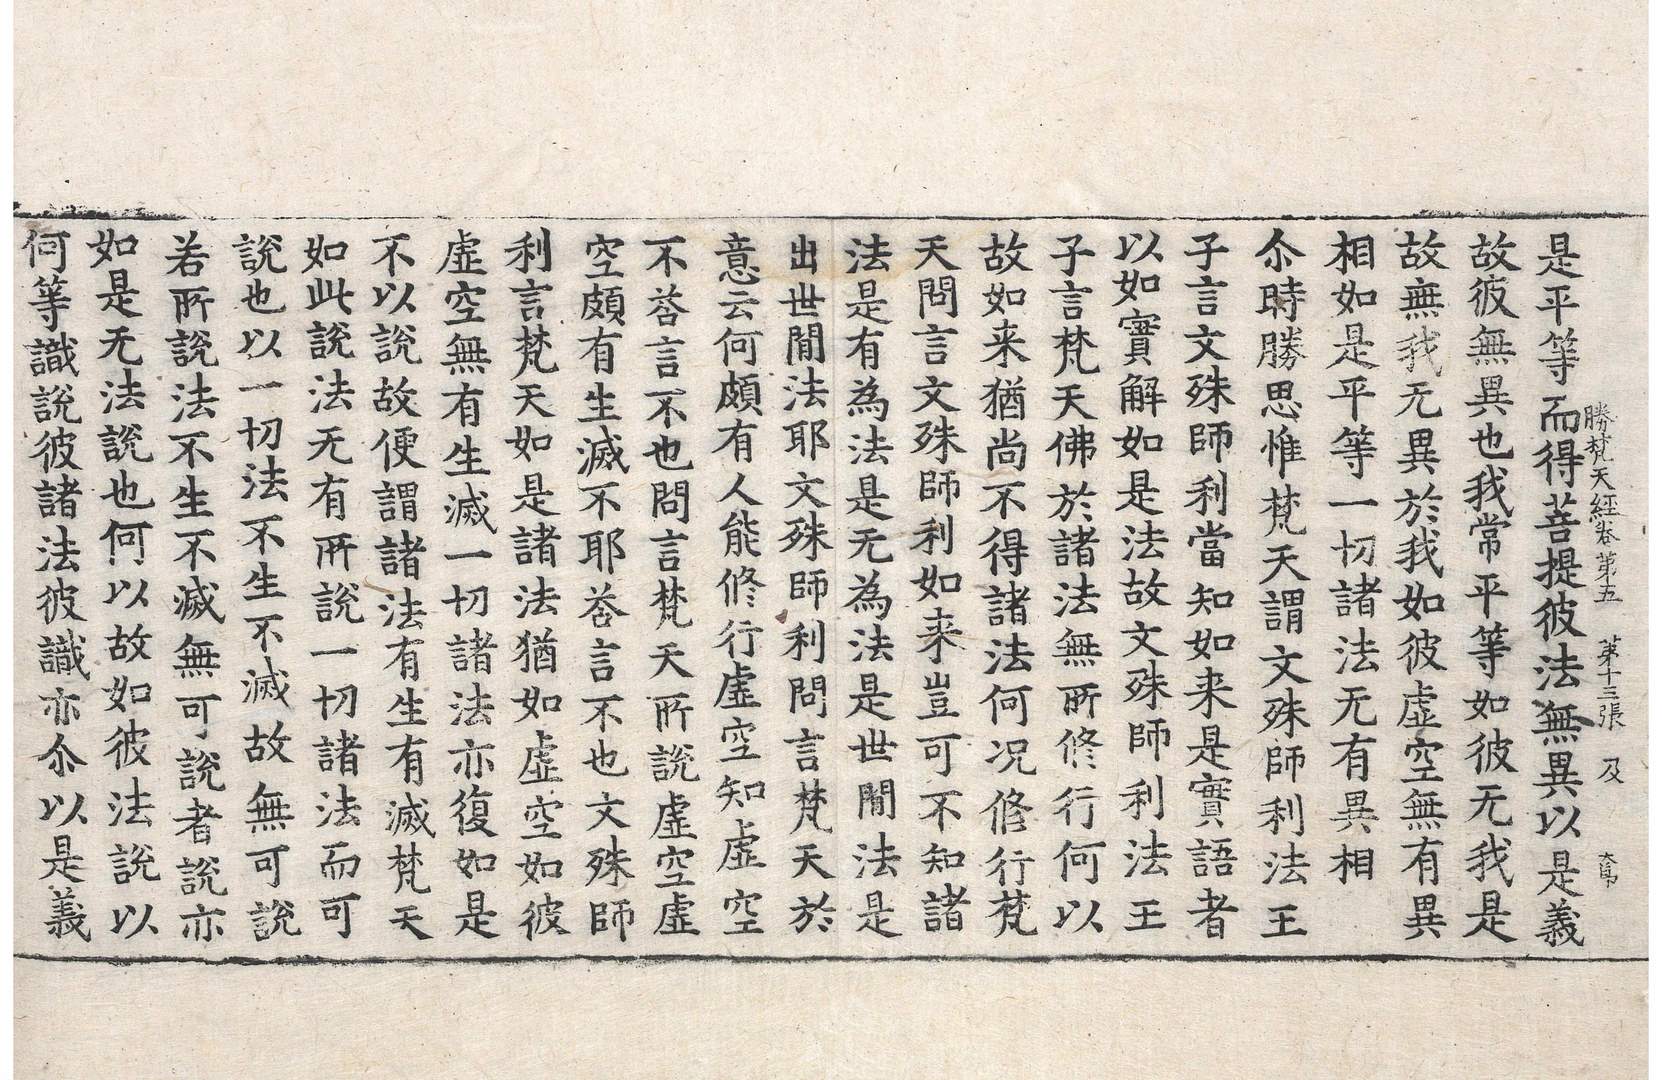 勝梵天經卷第五 第十三張 及
是平等而得菩提彼法無異以是義
故彼無異也我常平等如彼无我是
故無我无異於我如彼虛空無有異
相如是平等一切諸法无有異相
尒時勝思惟梵天謂文殊師利法王
子言文殊師利當知如来是實語者
以如實解如是法故文殊師利法王
子言梵天佛於諸法無所修行何以
故如来猶尚不得諸法何况修行梵
天問言文殊師利如来豈可不知諸
法是有為法是无為法是世閒法是
出世閒法耶文殊師利問言梵天於
意云何頗有人能修行虛空知虛空
不荅言不也問言梵天所說虛空虛
空頗有生滅不耶荅言不也文殊師
利言梵天如是諸法猶如虛空如彼
虛空無有生滅一切諸法亦復如是
不以說故便謂諸法有生有滅梵天
如此說法无有所說一切諸法而可
說也以一切法不生不滅故無可說
若所說法不生不滅無可說者說亦
如是无法說也何以故如彼法說以
何等識說彼諸法彼識亦尒以是義